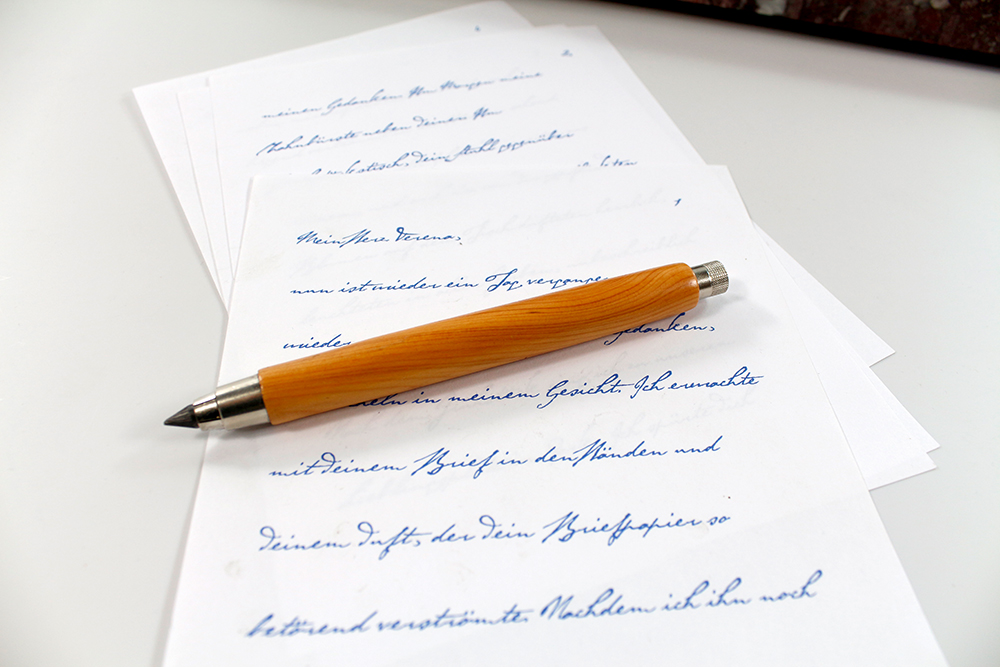 2
meinen Gedanken. Am Morgen meine
Zahnbürste neben deiner. Am
dein Stuhl gegenüber
1
Meine Verena,
nun ist wieder ein Tag
wieder gedanken,
in meinem Gesicht. Ich erwachte
mit deinem Brief in den Händen und
deinem Duft, der dein Briefpapier so
betörend verströmte. Nachdem ich ihn noch